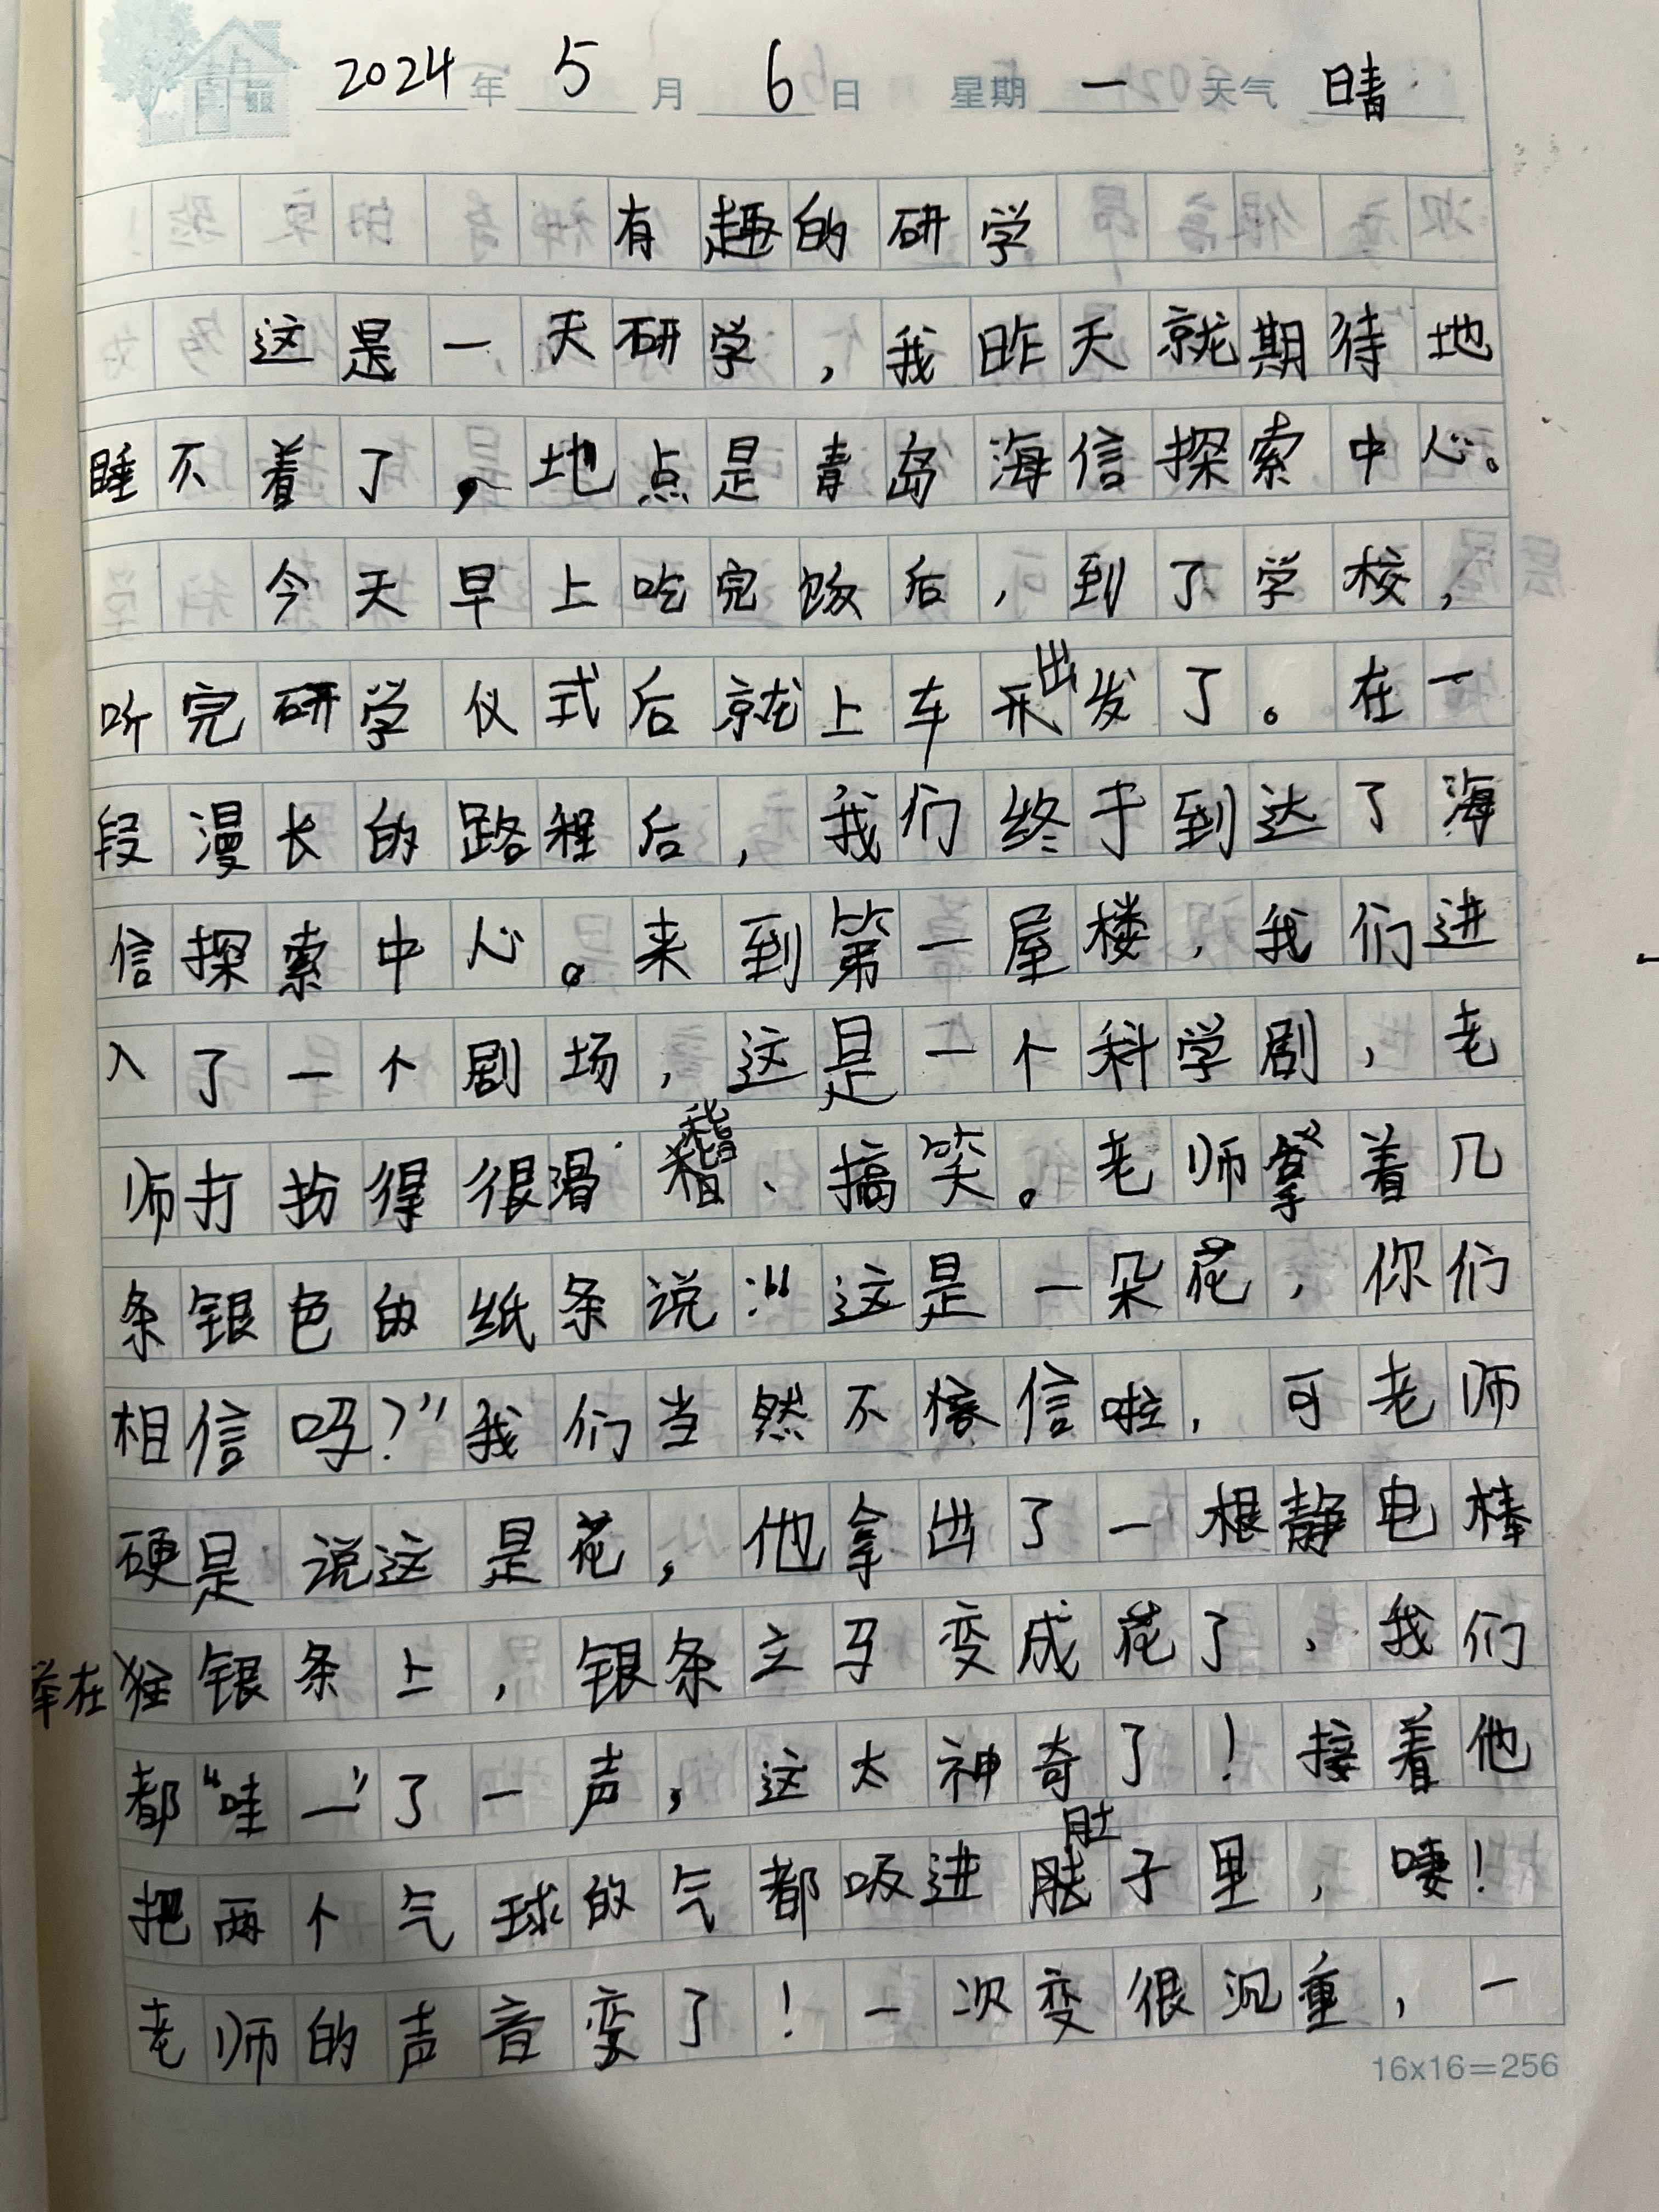 2024年5月6日 星期一天气 晴
有趣的研学
这是一天研学，我昨天就期待地
睡不着了，地点是青岛海信探索中心。
今天早上吃完饭后，到了学校，
听完研学仪式后就上车出发了。在一
段漫长的路程后，我们终于到达了海
信探索中心。来到第一屋楼，我们进
入了一个剧场，这是一个科学剧，老
师打扮得很滑稽、搞笑。老师拿着几
条银色的纸条说：“这是一朵花，你们
相信吗？”我们当然不信啦，可老师
硬是说这是花，他拿出了一根静电棒
举在银条上，银条立马变成花了，我们
都“哇—”了一声，这太神奇了！接着他
把两个气球的气都吸进肚子里，喽！
老师的声音变了！一次变很沉重，一
16x16=256